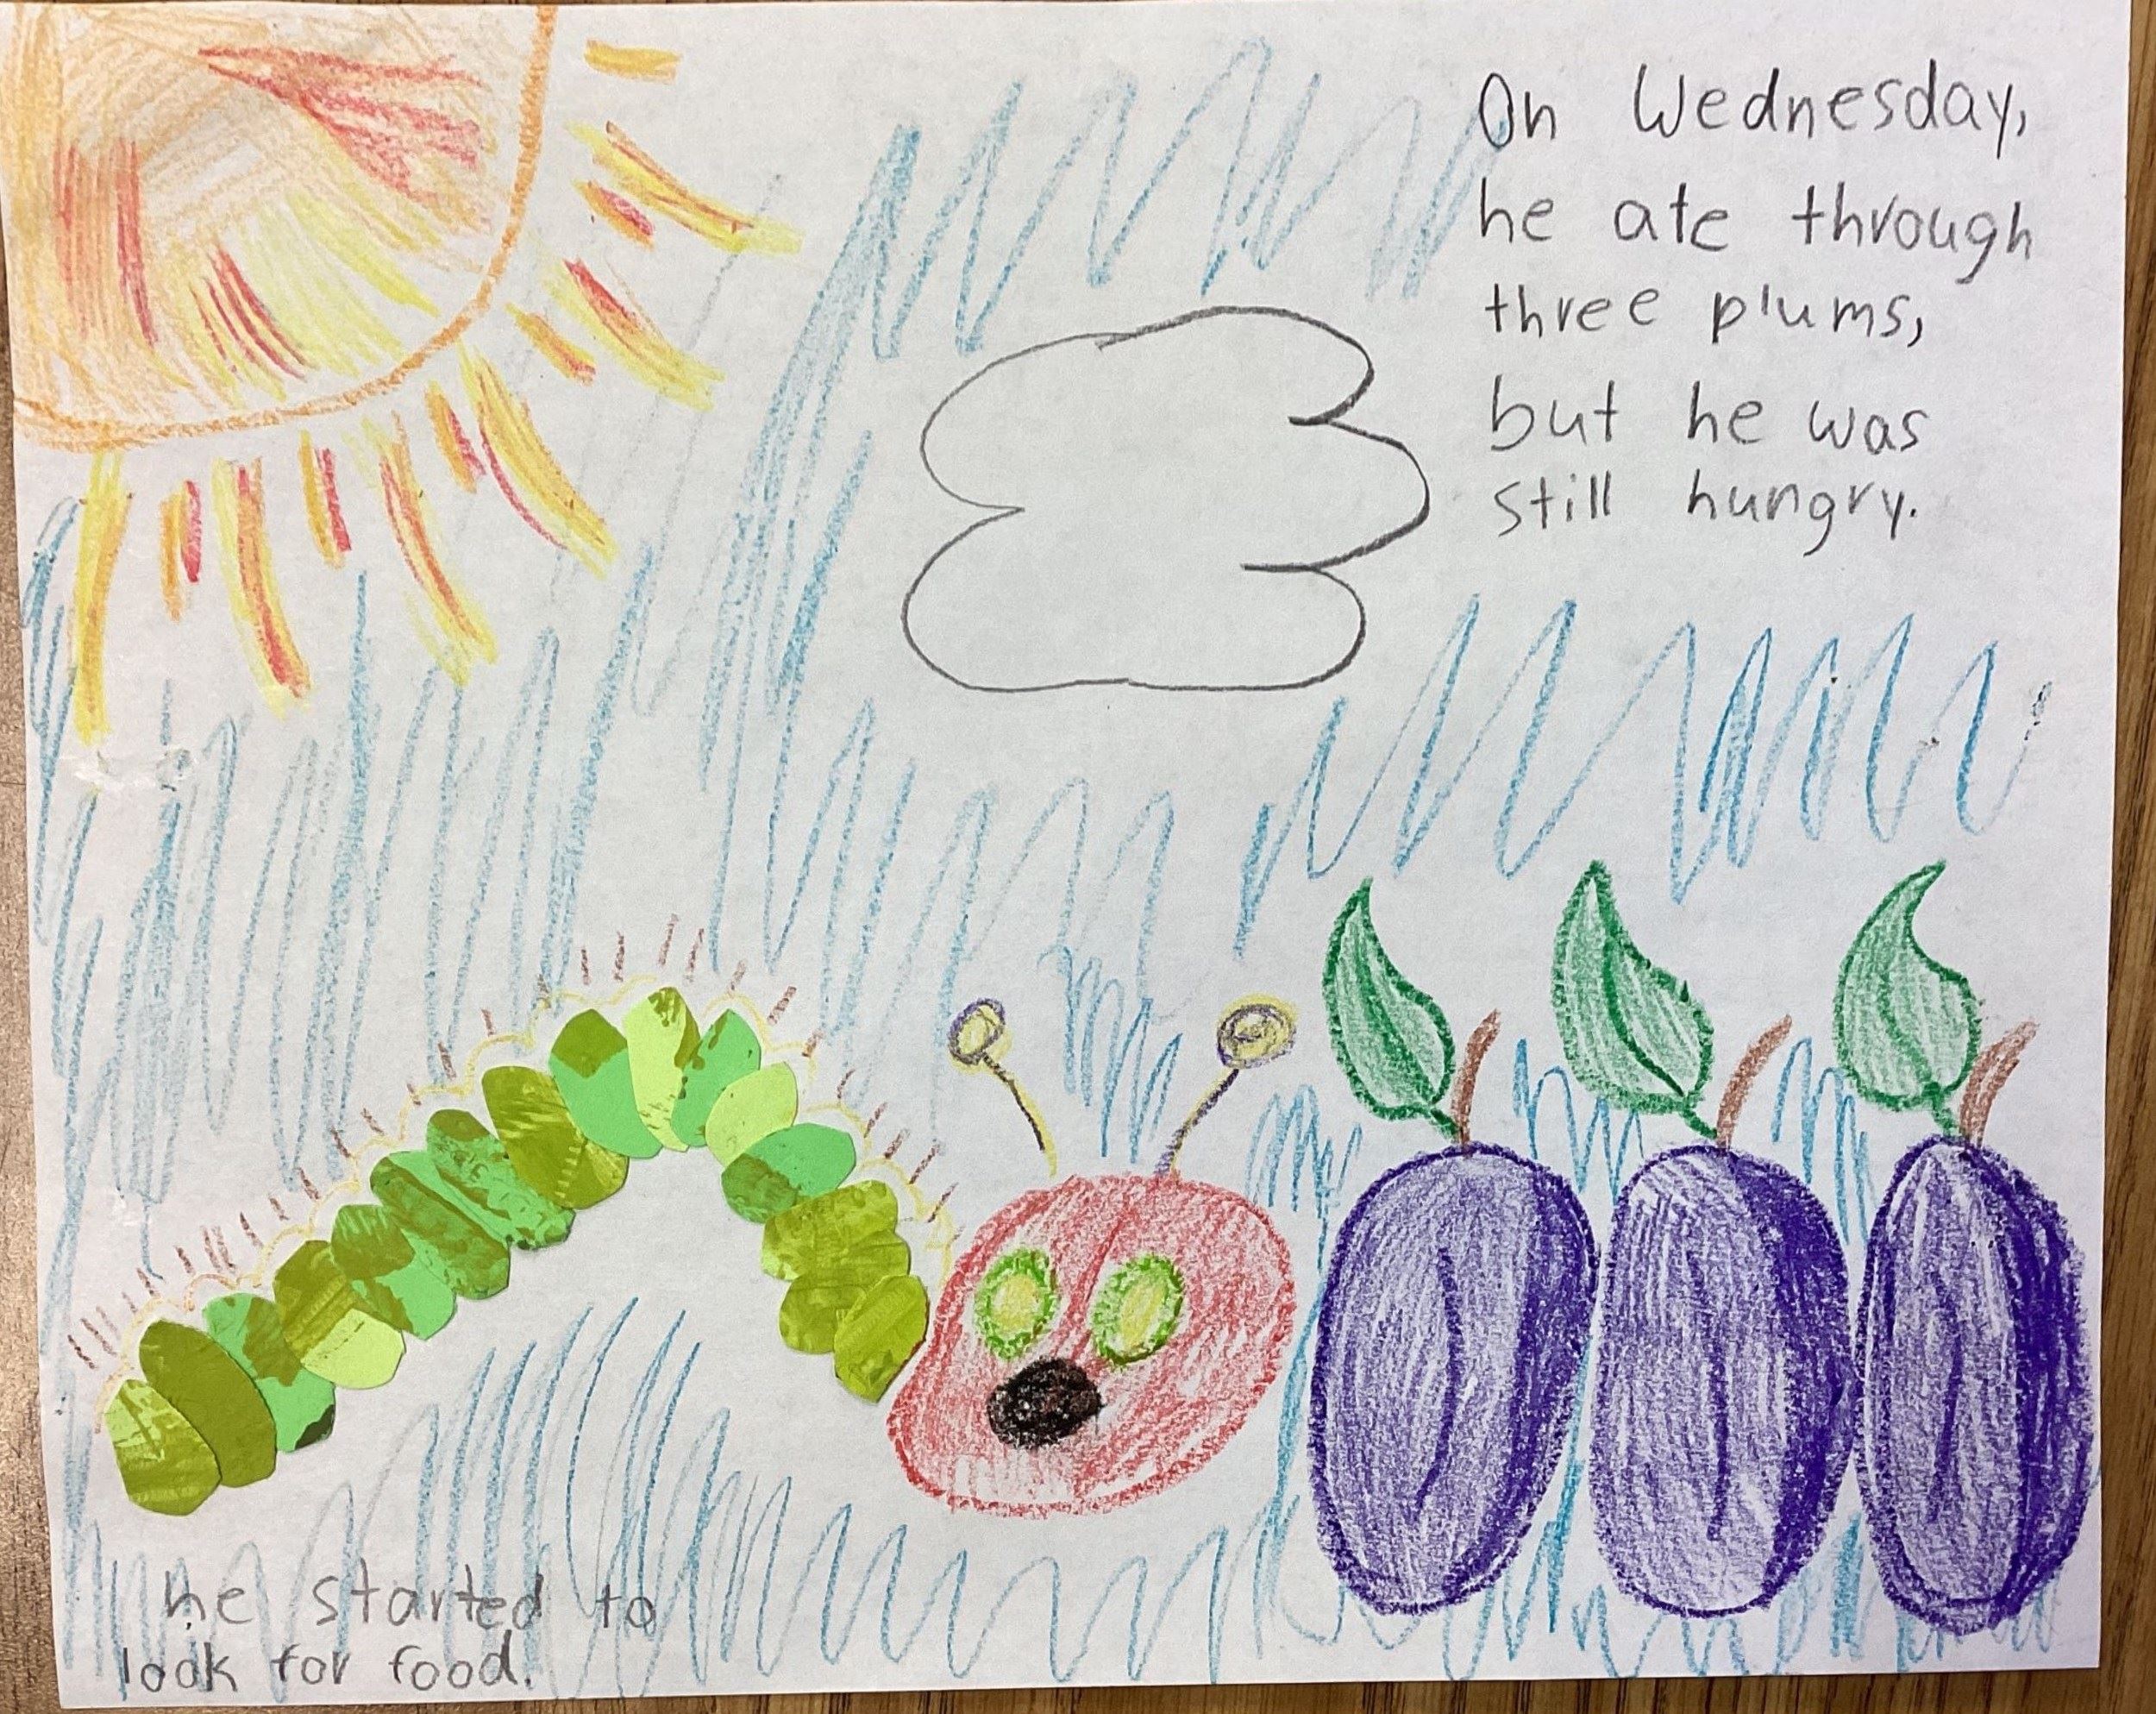 On Wednesday,
he ate through
three plums,
but he was
still hungry.
he started to
look for food.